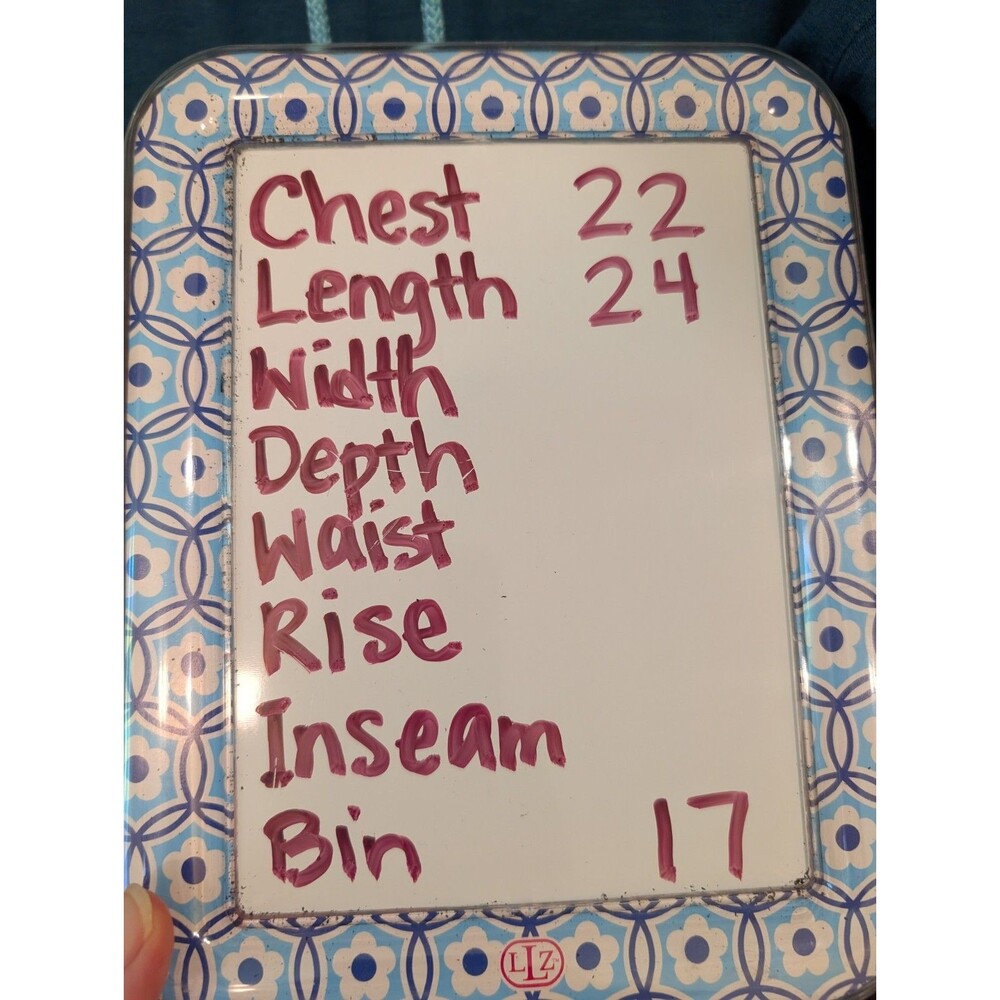 Chest 22
Length 24
Width
Depth
Waist
Rise
Inseam
Bin 17
LLZ